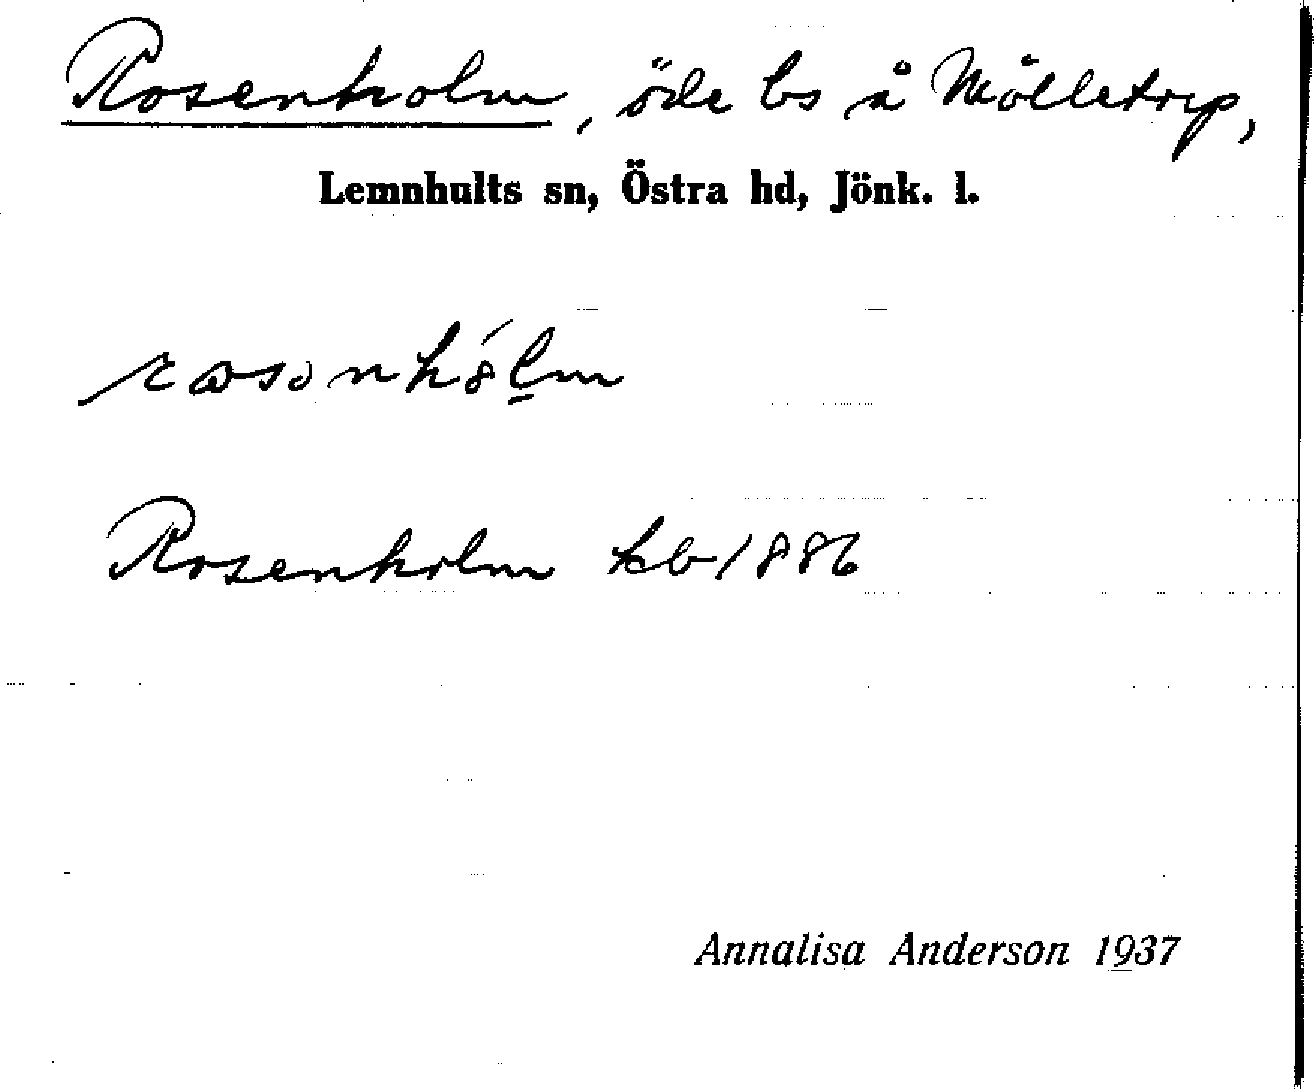 Rosenholm, öde bs å Mölletorp,
Lemnhults sn, Östra hd, Jönk. l.
Rosenholm kb 1886
Annalisa Anderson 1937